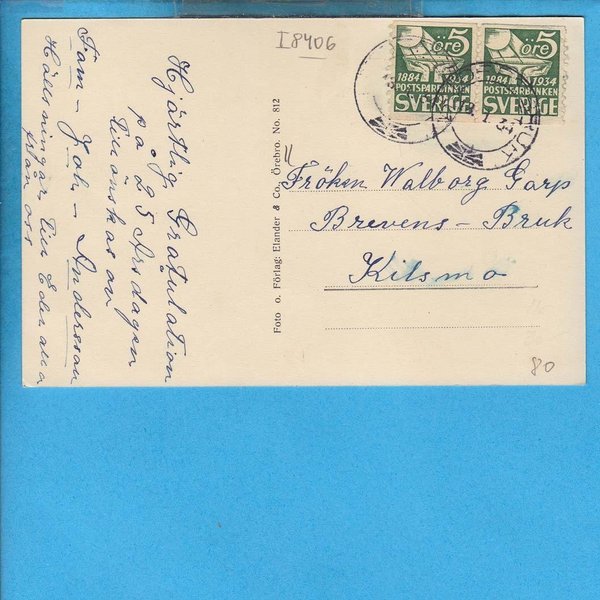 I8406
öre 5
1884 1934
POSTSPARBANKEN
SVERIGE
öre 5
1884 1934
POSTSPARBANKEN
SVERIGE
Hjärtlig Gratulation
på 25 Årsdagen
tillönskas av
Fam - Joh - Andersson
Hälsningar till Eder alla
från oss
Foto o. Förlag: Elander & Co., Örebro. No. 812
Fröken Walborg Garp
Brevens - Bruk
Kilsmo
80